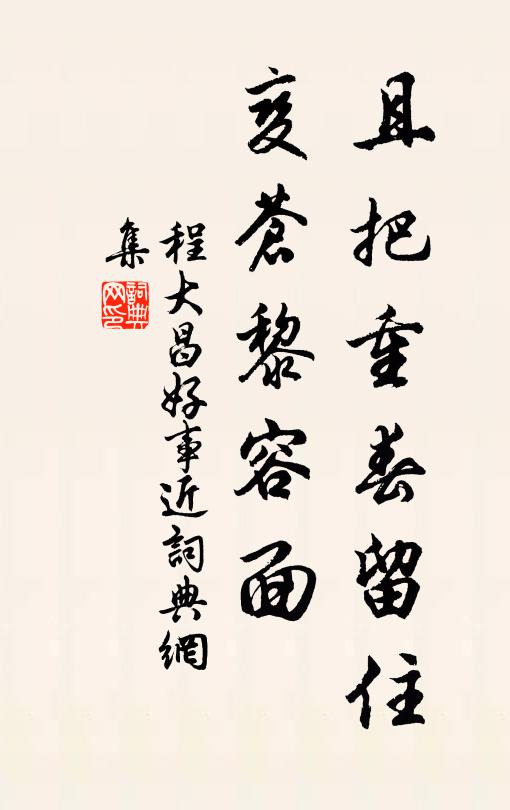 且把重春留住
变苍黎容面
程大昌好事近詞典網
集
詞典
网印